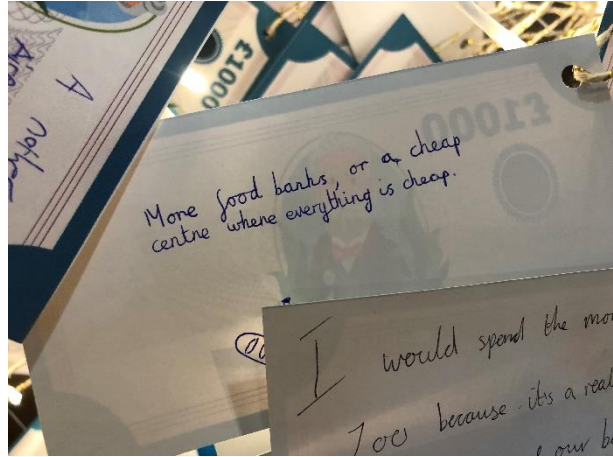 £1000
A
More food banks, or a cheap
centre where everything is cheap.
I would spend the
Zoo because it's a real
our